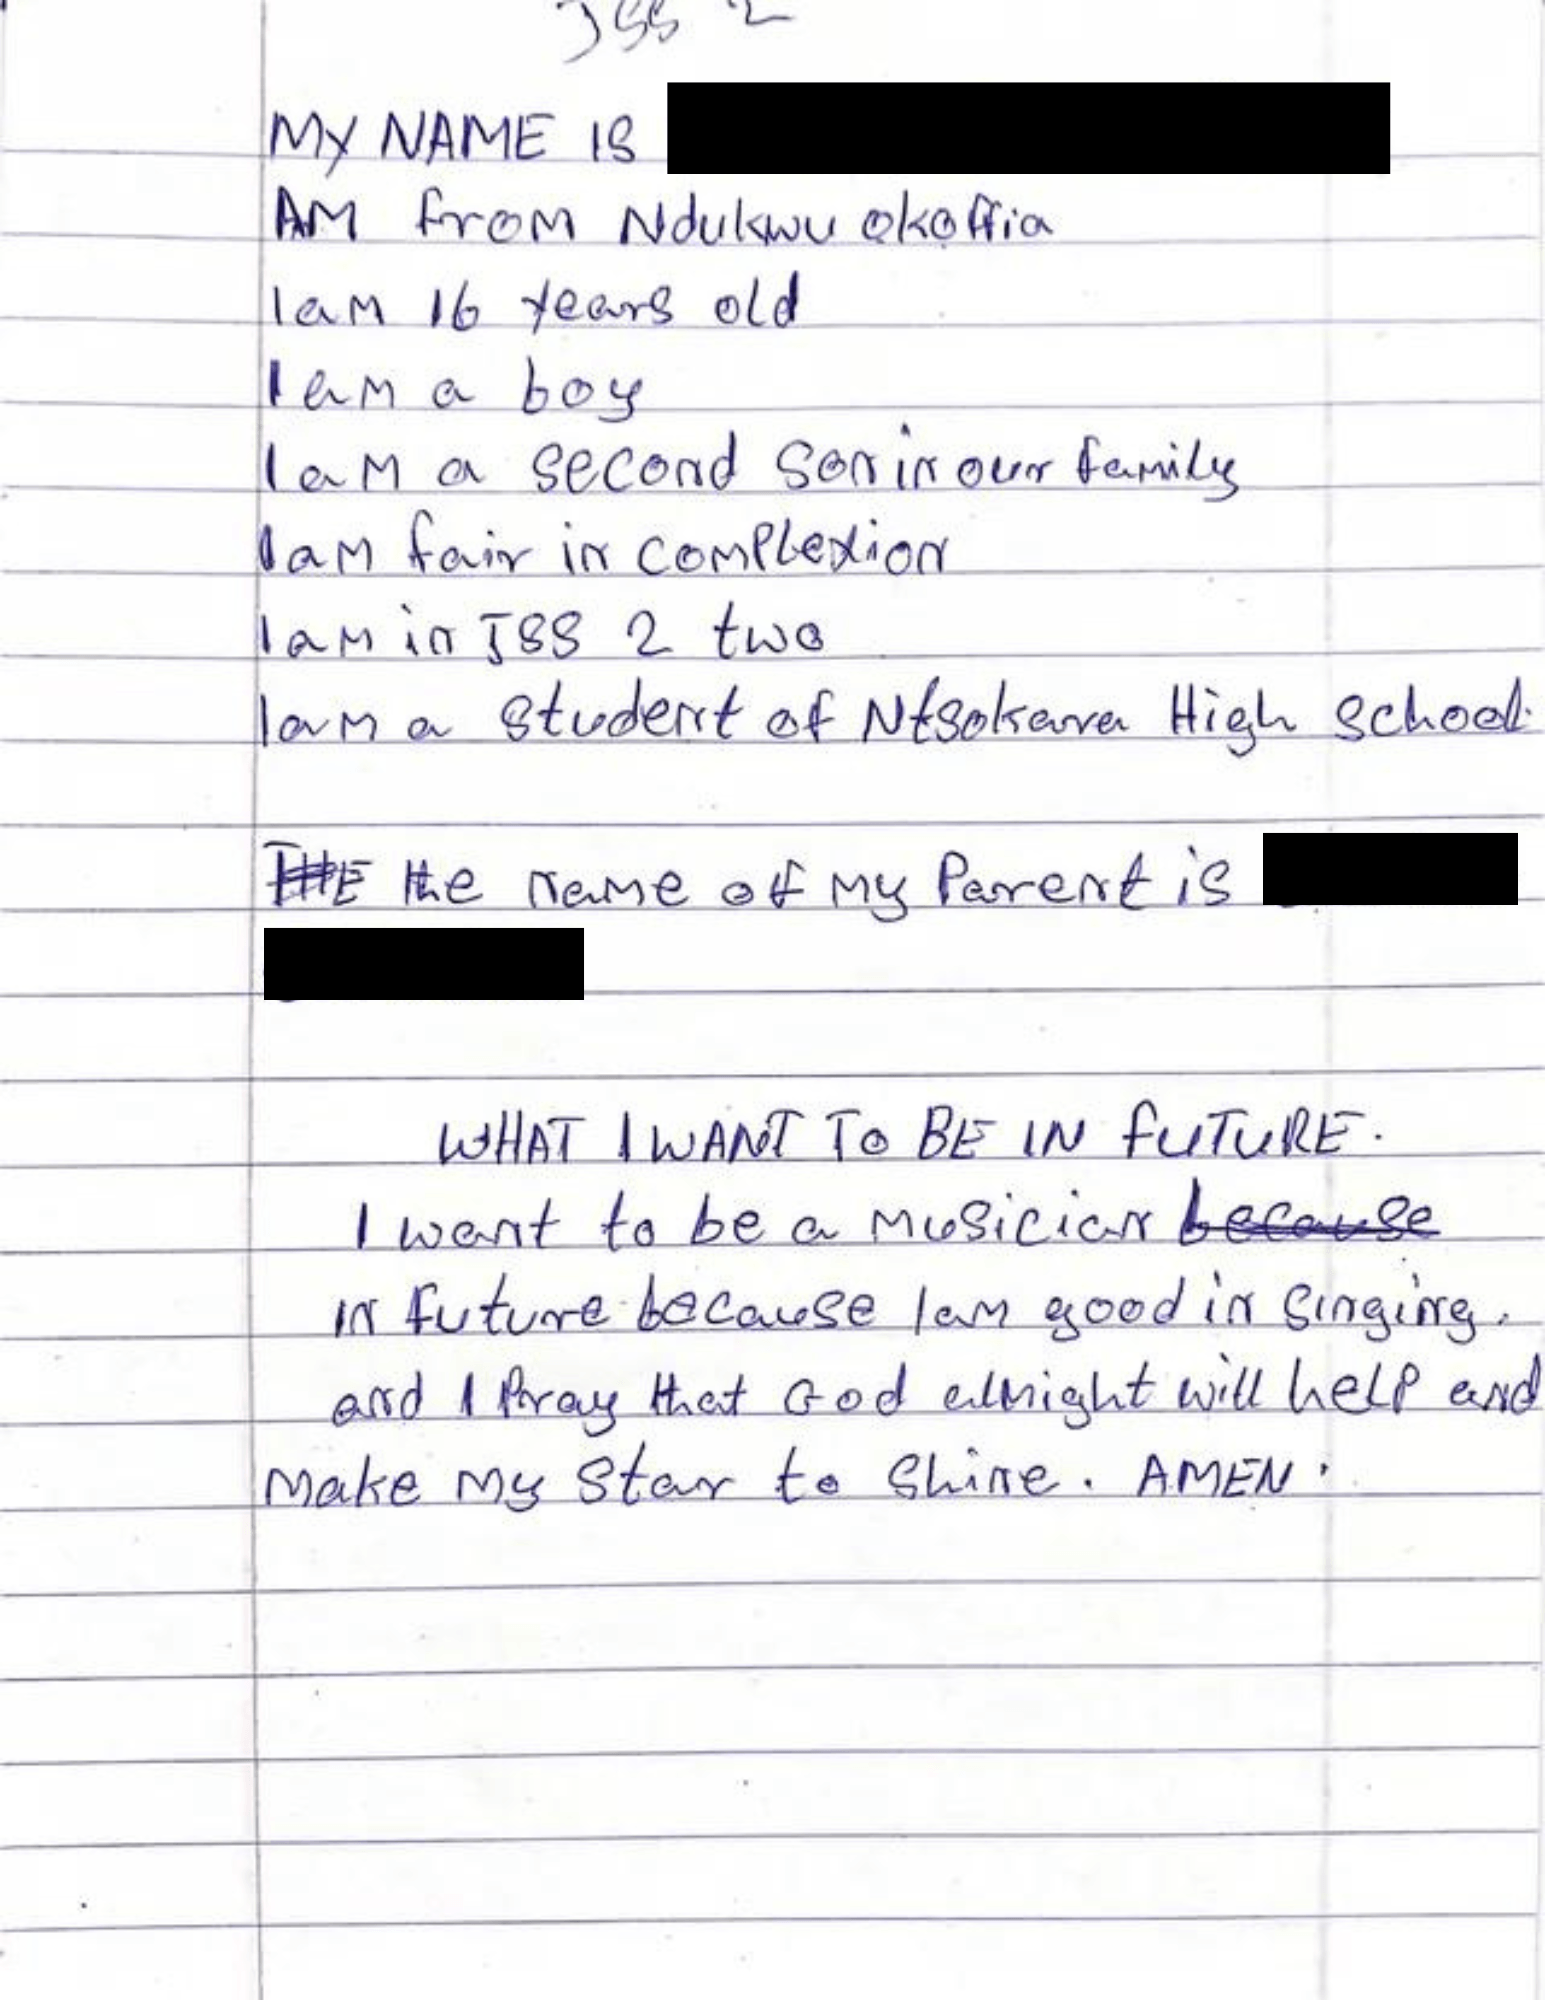 JSS 2
MY NAME IS
AM from Ndukwu okoffia
I am 16 years old
I am a boy
I am a second son in our family
I am fair in complexion
I am in JSS 2 two
I am a student of Ntsokara High school.
THE the name of my Parent is
WHAT I WANT TO BE IN fUTURE.
I want to be a musician because
in future because I am good in singing.
and I Pray that God almight will help and
make my star to shine. AMEN.